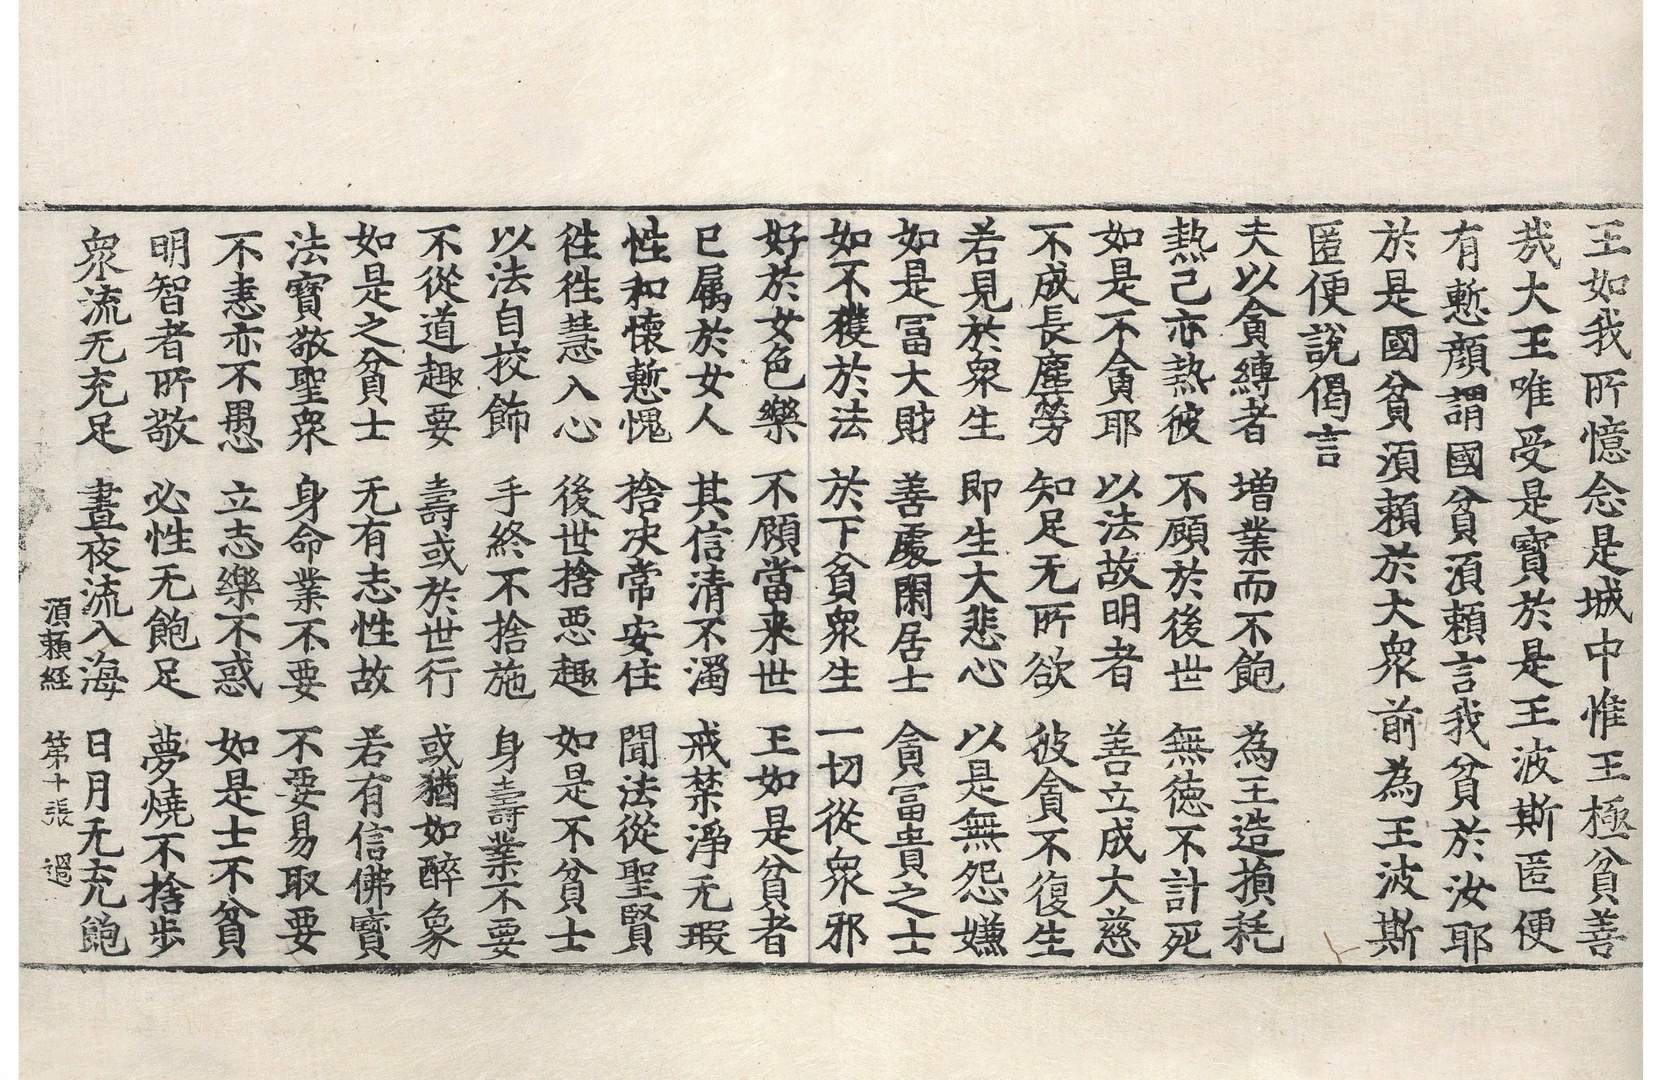 王如我所憶念是城中惟王極貧善
㦲大王唯受是寶於是王波斯匿便
有慙顔謂國貧湏賴言我貧於汝耶
於是國貧湏賴於大衆前為王波斯
匿便說偈言
夫以貪縛者 增業而不飽 為王造損秏
熱己亦熱彼 不顧於後世 無徳不計死
如是不貪耶 以法故明者 善立成大慈
不成長塵勞 知足无所欲 彼貪不復生
若見於衆生 即生大悲心 以是無怨嫌
如是冨大財 善處閑居士 貪冨貴之士
如不獲於法 於下貧衆生 一切從衆邪
好於女色樂 不顧當来世 王如是貧者
已属於女人 其信清不濁 戒禁淨无瑕
性和懷慙愧 捨决常安住 聞法從聖賢
徃徃慧入心 後世捨悪趣 如是不貧士
以法自挍飾 手終不捨施 身壽業不要
不從道趣要 壽或於世行 或猶如醉象
如是之貧士 无有志性故 若有信佛寶
法寶敬聖衆 身命業不要 不要易取要
不恚亦不愚 立志樂不惑 如是士不貧
明智者所敬 必性无飽足 夢燒不捨步
衆流无充足 晝夜流入海 日月无充飽
湏賴經 第十張 遐